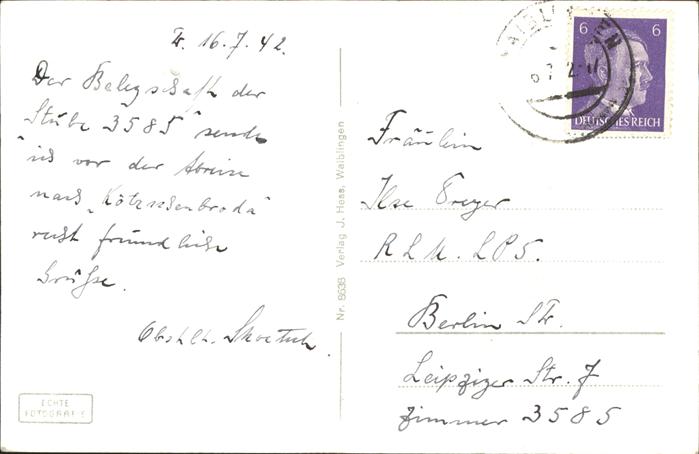 Fr. 16.7.42.
Der Belegschaft der
Stube 3585" sende
ich vor der Abreise
nach "Kötzschenbroda"
recht freundliche
Grüße.
Obstlt.
ECHTE
FOTOGRAFIE
Nr. 8638 Verlag J. Hess, Waiblingen
6 6
DEUTSCHES REICH
Fräulein
Ilse
R L M. L P 5.
Berlin
Leipziger Str. 7
Zimmer 3585